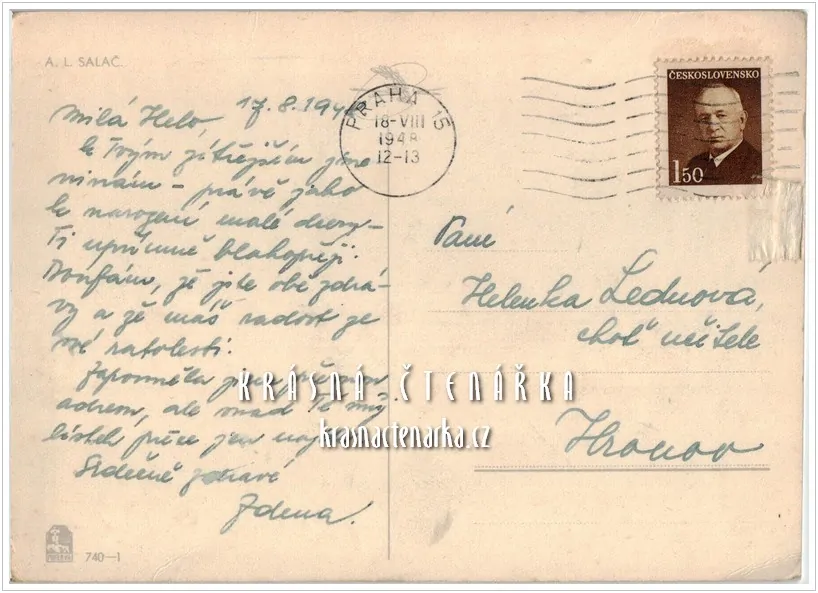 A. L. SALAČ.
Milá Helo, 17.8.194
k Tvým zítřejším jme
ninám – právě jako
k narození malé dcery –
Ti upřímně blahopřeji.
Doufám, že jste obě zdrá-
vy a že máš radost ze
své ratolesti.
Zapomněla jsem
adresu, ale snad Tě můj
lístek přece jen
Srdečně zdraví
Zdena.
740–1
PRAHA 15
18-VIII
1948
12-13
ČESKOSLOVENSKO
1.50
Paní
Helenka Lednová,
choť učitele
Hronov
KRÁSNÁ ČTENÁŘKA
krasnactenarka.cz